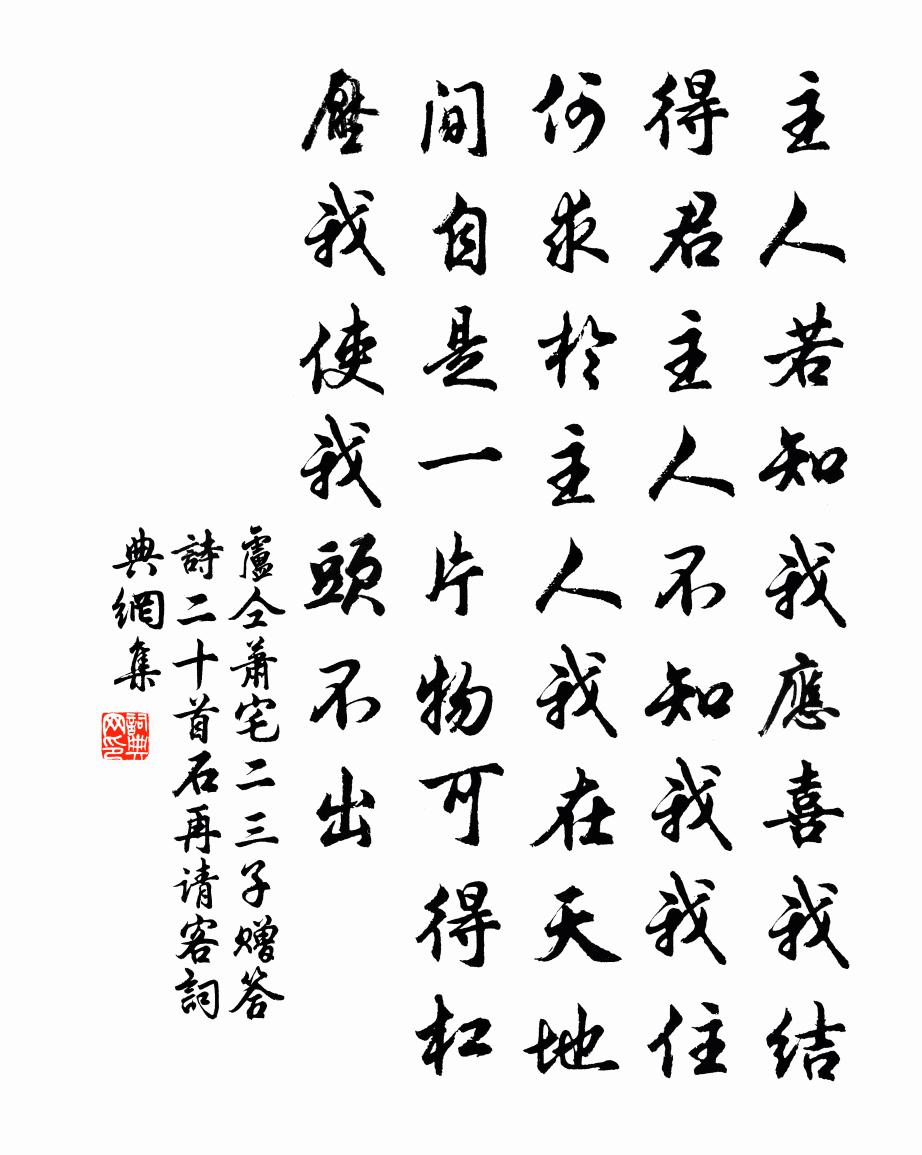 主人若知我應喜我結
得君主人不知我我住
何求於主人我在天地
間自是一片物可得杠
壓我使我頭不出
盧仝蕭宅二三子贈答
詩二十首石再请客詞
典網集
詞典网印